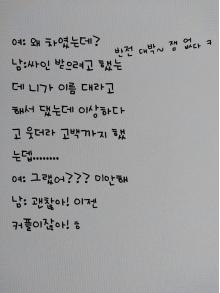 여: 왜 하였는데?
반전 대박~ 쟁 없다 ㅋ
남:싸인 받으려고 했는
데 니가 이름 대라고
해서 댔는데 이상하다
고 웃더라 고백까지 했
는뎁........
여: 그랬어??? 미안해
남: 괜찮아! 이젠
커플이잖아! ㅎ